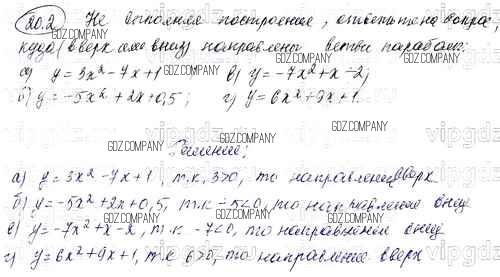 20.2 Не выполняя построения, ответьте на вопрос,
куда (вверх или вниз) направлены ветви параболы:
а) y = 3x² - 7x + 1; в) y = -7x² + x - 2;
б) y = -5x² + 2x + 0,5; г) y = 6x² + 9x + 1.
Решение:
а) y = 3x² - 7x + 1, т.к. 3>0, то направлены вверх
б) y = -5x² + 2x + 0,5, т.к. -5<0, то направлены вниз
в) y = -7x² + x - 2, т.к. -7<0, то направлены вниз
г) y = 6x² + 9x + 1, т.к. 6>0, то направлены вверх